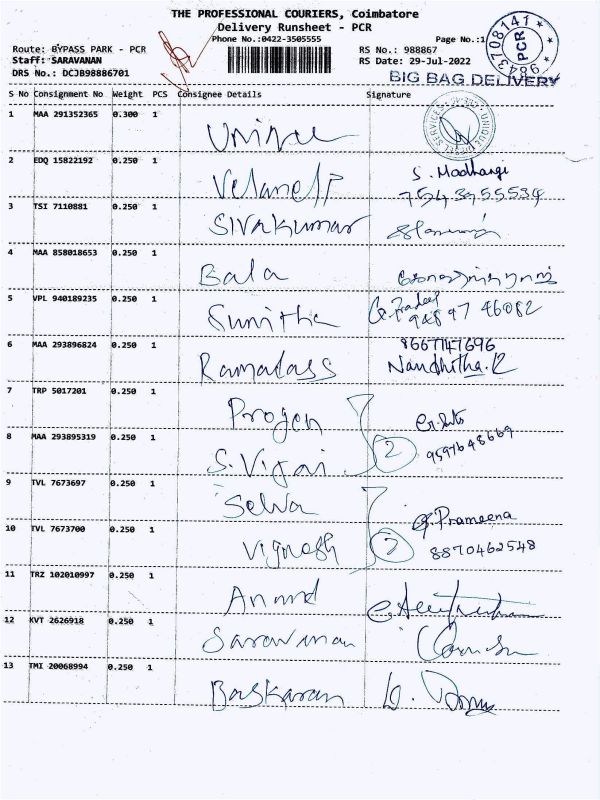 THE PROFESSIONAL COURIERS, Coimbatore
Delivery Runsheet - PCR
Phone No.:0422-3505555
Page No.:1
Route: BYPASS PARK - PCR
RS No.: 988867
Staff: SARAVANAN
RS Date: 29-Jul-2022
DRS No.: DCJB98886701
BIG BAG DELIVERY
PCR
S No Consignment No Weight PCS Consignee Details Signature
1 MAA 291352365 0.300 1 Unique
2 EDQ 15822192 0.250 1 S. Madhangi
7543955534
3 TSI 7110881 0.250 1 Sivakumar
4 MAA 858018653 0.250 1 Bala
5 VPL 940189235 0.250 1 Sunitha G. Pradeep
94897 46082
6 MAA 293896824 0.250 1 Ramadass 8667747696
Nandhitha.R
7 TRP 5017201 0.250 1 Progen
8 MAA 293895319 0.250 1 S. Vijai 2 9597648669
9 TVL 7673697 0.250 1 Selva G. Prameena
10 TVL 7673700 0.250 1 Vignesh 2 8870462548
11 TRZ 102010997 0.250 1 Anand
12 KVT 2626918 0.250 1 Saravanan
13 TMI 20068994 0.250 1 Baskaran